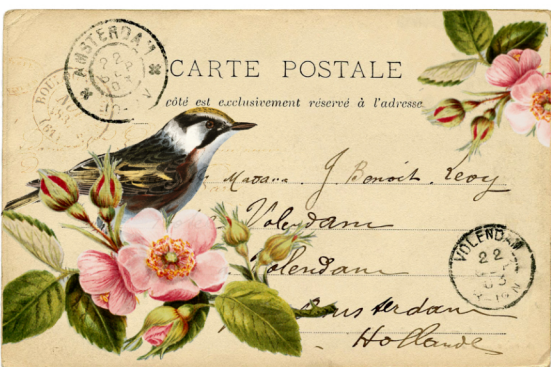 AMSTERDAM
22
CARTE POSTALE
côté est exclusivement réservé à l'adresse
J. Benoit Levy
Volendam
Volendam
Amsterdam
Hollande
VOLENDAM
22
SEP
03